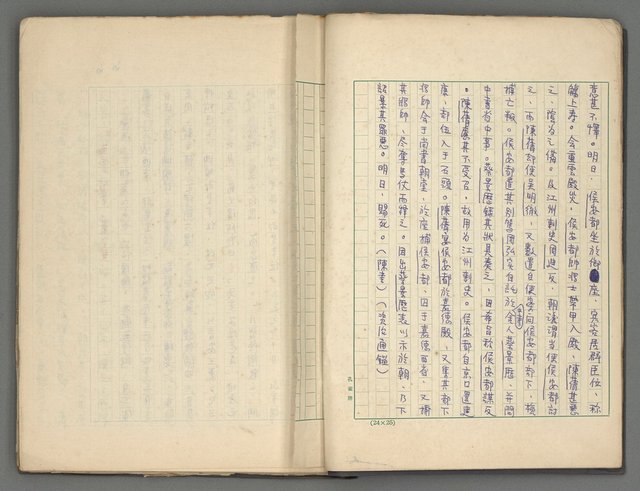 意甚不懌。明日，侯安都坐於御座，賓客居群臣位，称
觴上壽。会重雲殿災，侯安都帥將士帶甲入殿，陳蒨甚惡
之，陰為之備。及江州刺史周迪反，朝議謂当使侯安都討
之，而陳蒨却使吳明徹，又數遣台使案問侯安都部下，檢
括亡叛。侯安都遣其別駕周弘实自託於舍人蔡景歷，并問
中書省中事。蔡景歷錄其狀具奏之，因希旨称侯安都謀反
。陳蒨慮其不受召，故用为江州刺史。侯安都自京口還建
康，部伍入于石頭。陳蒨宴侯安都於嘉德殿，又集其部下
將帥会于尚書朝堂，於座捕侯安都，囚于嘉德西省，又捕
其將帥，尽奪馬仗而釋之。因出蔡景歷表以示於朝，乃下
詔暴其罪惡。明日，賜死。（陳書）（資治通鑑）
孔雀牌
(24×25)